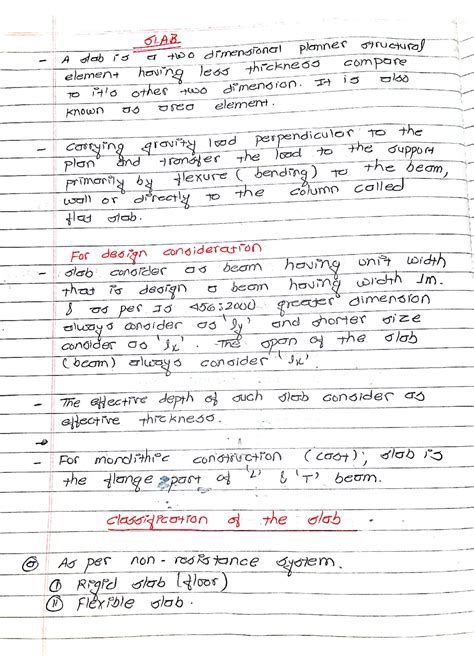 SLAB
- A slab is a two dimensional planner structural
element having less thickness compare
to it's other two dimension. It is also
known as area element.
- Carrying gravity load perpendicular to the
plan and transfer the load to the support
primarily by flexure (bending) to the beam,
wall or directly to the column called
flat slab.
For design consideration
- slab consider as beam having unit width
that is design a beam having width 1m.
& as per IS 456:2000 greater dimension
always consider as 'ly' and shorter size
consider as 'lx'. The span of the slab
(beam) always consider 'lx'.
- The effective depth of such slab consider as
effective thickness.
- For monolithic construction (cast), slab is
the flange part of 'L' & 'T' beam.
Classification of the slab
ⓐ As per non-resistance system.
① Rigid slab (floor)
ⓘⓘ Flexible slab.